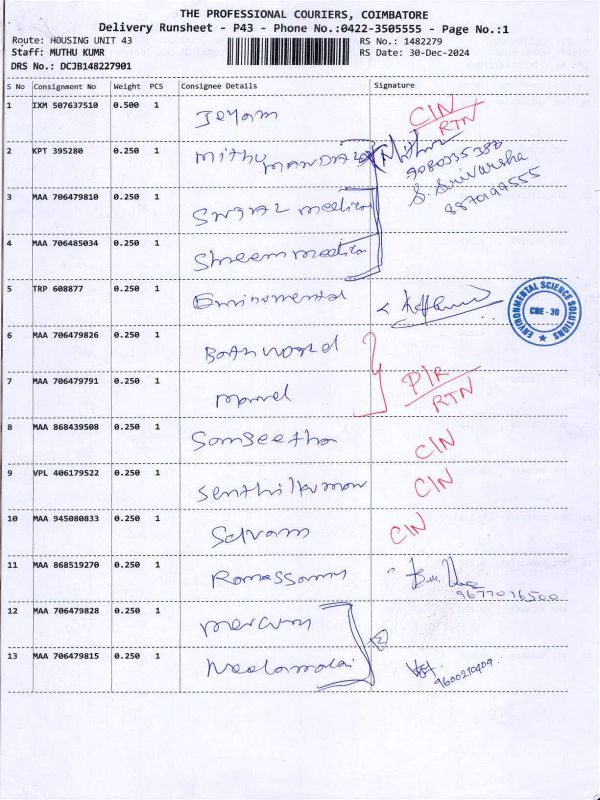 THE PROFESSIONAL COURIERS, COIMBATORE
Delivery Runsheet - P43 - Phone No.:0422-3505555 - Page No.:1
Route: HOUSING UNIT 43 RS No.: 1482279
Staff: MUTHU KUMR RS Date: 30-Dec-2024
DRS No.: DCJB148227901
S No Consignment No Weight PCS Consignee Details Signature
1 IXM 507637510 0.500 1 Jeyam CIN
RTN
2 KPT 395280 0.250 1 Mithu
9080335380
S. Srivarsha
8870199555
3 MAA 706479810 0.250 1 medical
4 MAA 706485034 0.250 1 Shreem medical
5 TRP 608877 0.250 1 Environmental
ENVIRONMENTAL SCIENCE SOLUTIONS
CBE - 30
6 MAA 706479826 0.250 1 world
7 MAA 706479791 0.250 1 marvel P/R
RTN
8 MAA 868439508 0.250 1 Sangeetha CIN
9 VPL 406179522 0.250 1 Senthilkumar CIN
10 MAA 945080833 0.250 1 Selvam CIN
11 MAA 868519270 0.250 1 Ramassamy
9677016500
12 MAA 706479828 0.250 1 mercury
2
13 MAA 706479815 0.250 1 Neelamalai
9600210409